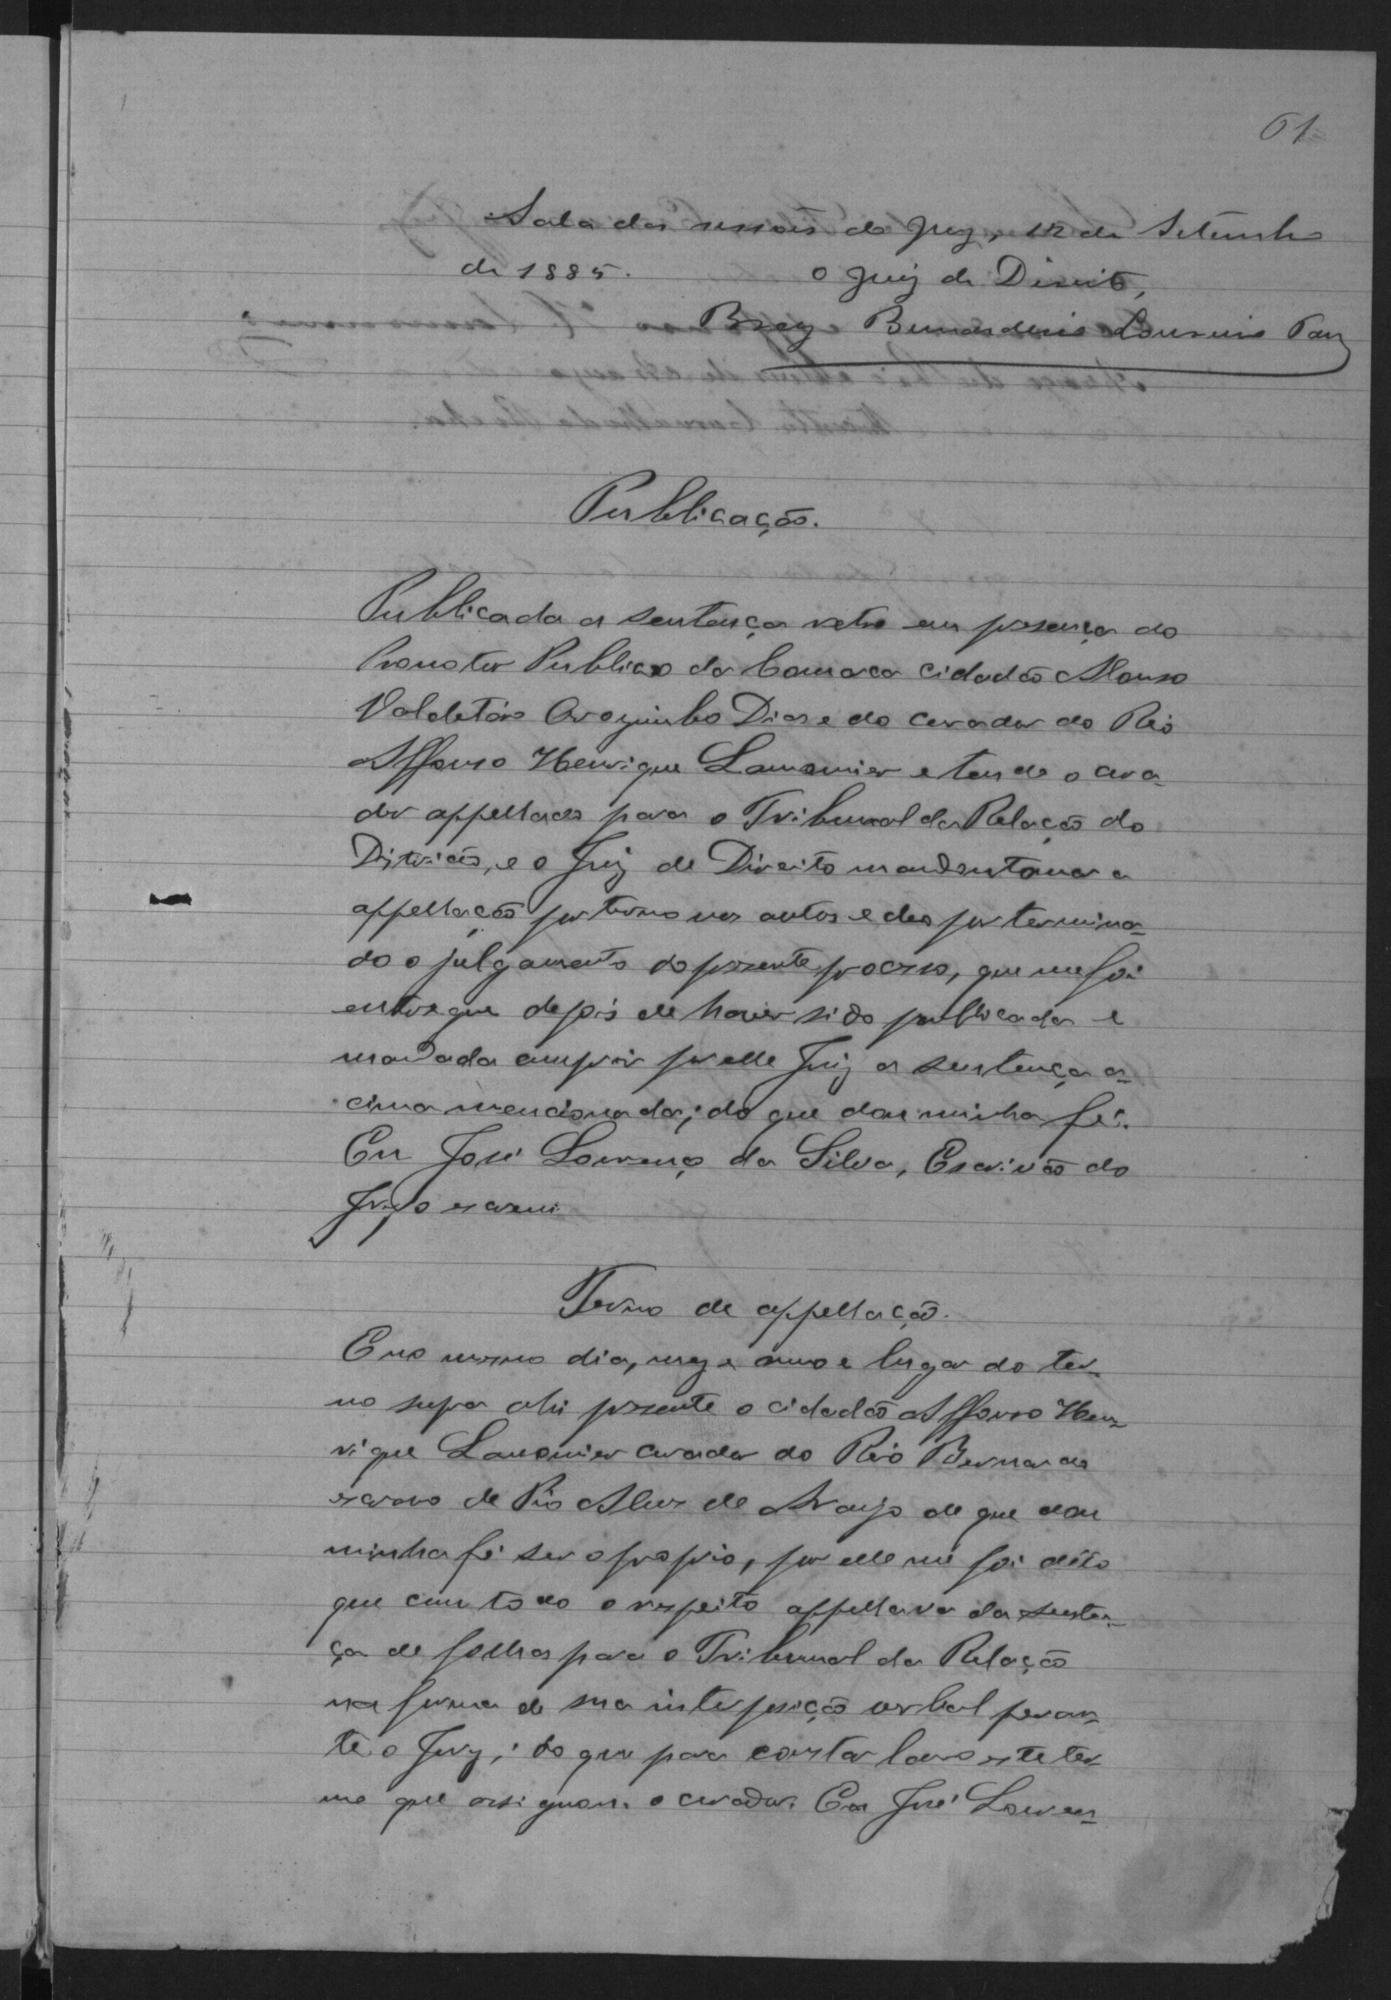 61
Sala das sessões do Jury, 12 de Setembro
de 1885. O Juiz de Direito,
Braz Bernardino Loureiro Tav
Publicação.
Publicada a sentença retro em presença do
Promotor Publico da Comarca cidadão Afonso
Dias e do curador do Réo
Affonso Henrique Lamounier e tendo o cura-
dor appellado para o Tribunal da Relação do
Districto, e o Juiz de Direito mandou tomar a
appellação por termo nos autos e deo por termina-
do o julgamento do presente processo, que me foi
entregue depois de haver sido publicada e
mandada cumprir por elle Juiz a sentença a-
cima mencionada; do que dou minha fé.
Eu José Lourenço da Silva, Escrivão do
Jury o escrevi
Termo de appellação.
E no mesmo dia, mez e anno e lugar do ter-
mo supra ahi presente o cidadão Affonso Hen-
rique Lamounier curador do Réo Bernardo
escravo de Pio Alves de Araujo de que dou
minha fé ser o proprio, por elle me foi dito
que com todo o respeito appellava da senten-
ça de folhas para o Tribunal da Relação
na forma de sua interposição verbal peran-
te o Jury; do que para constar lavro este ter-
mo que assignou o curador. Eu José Louren-